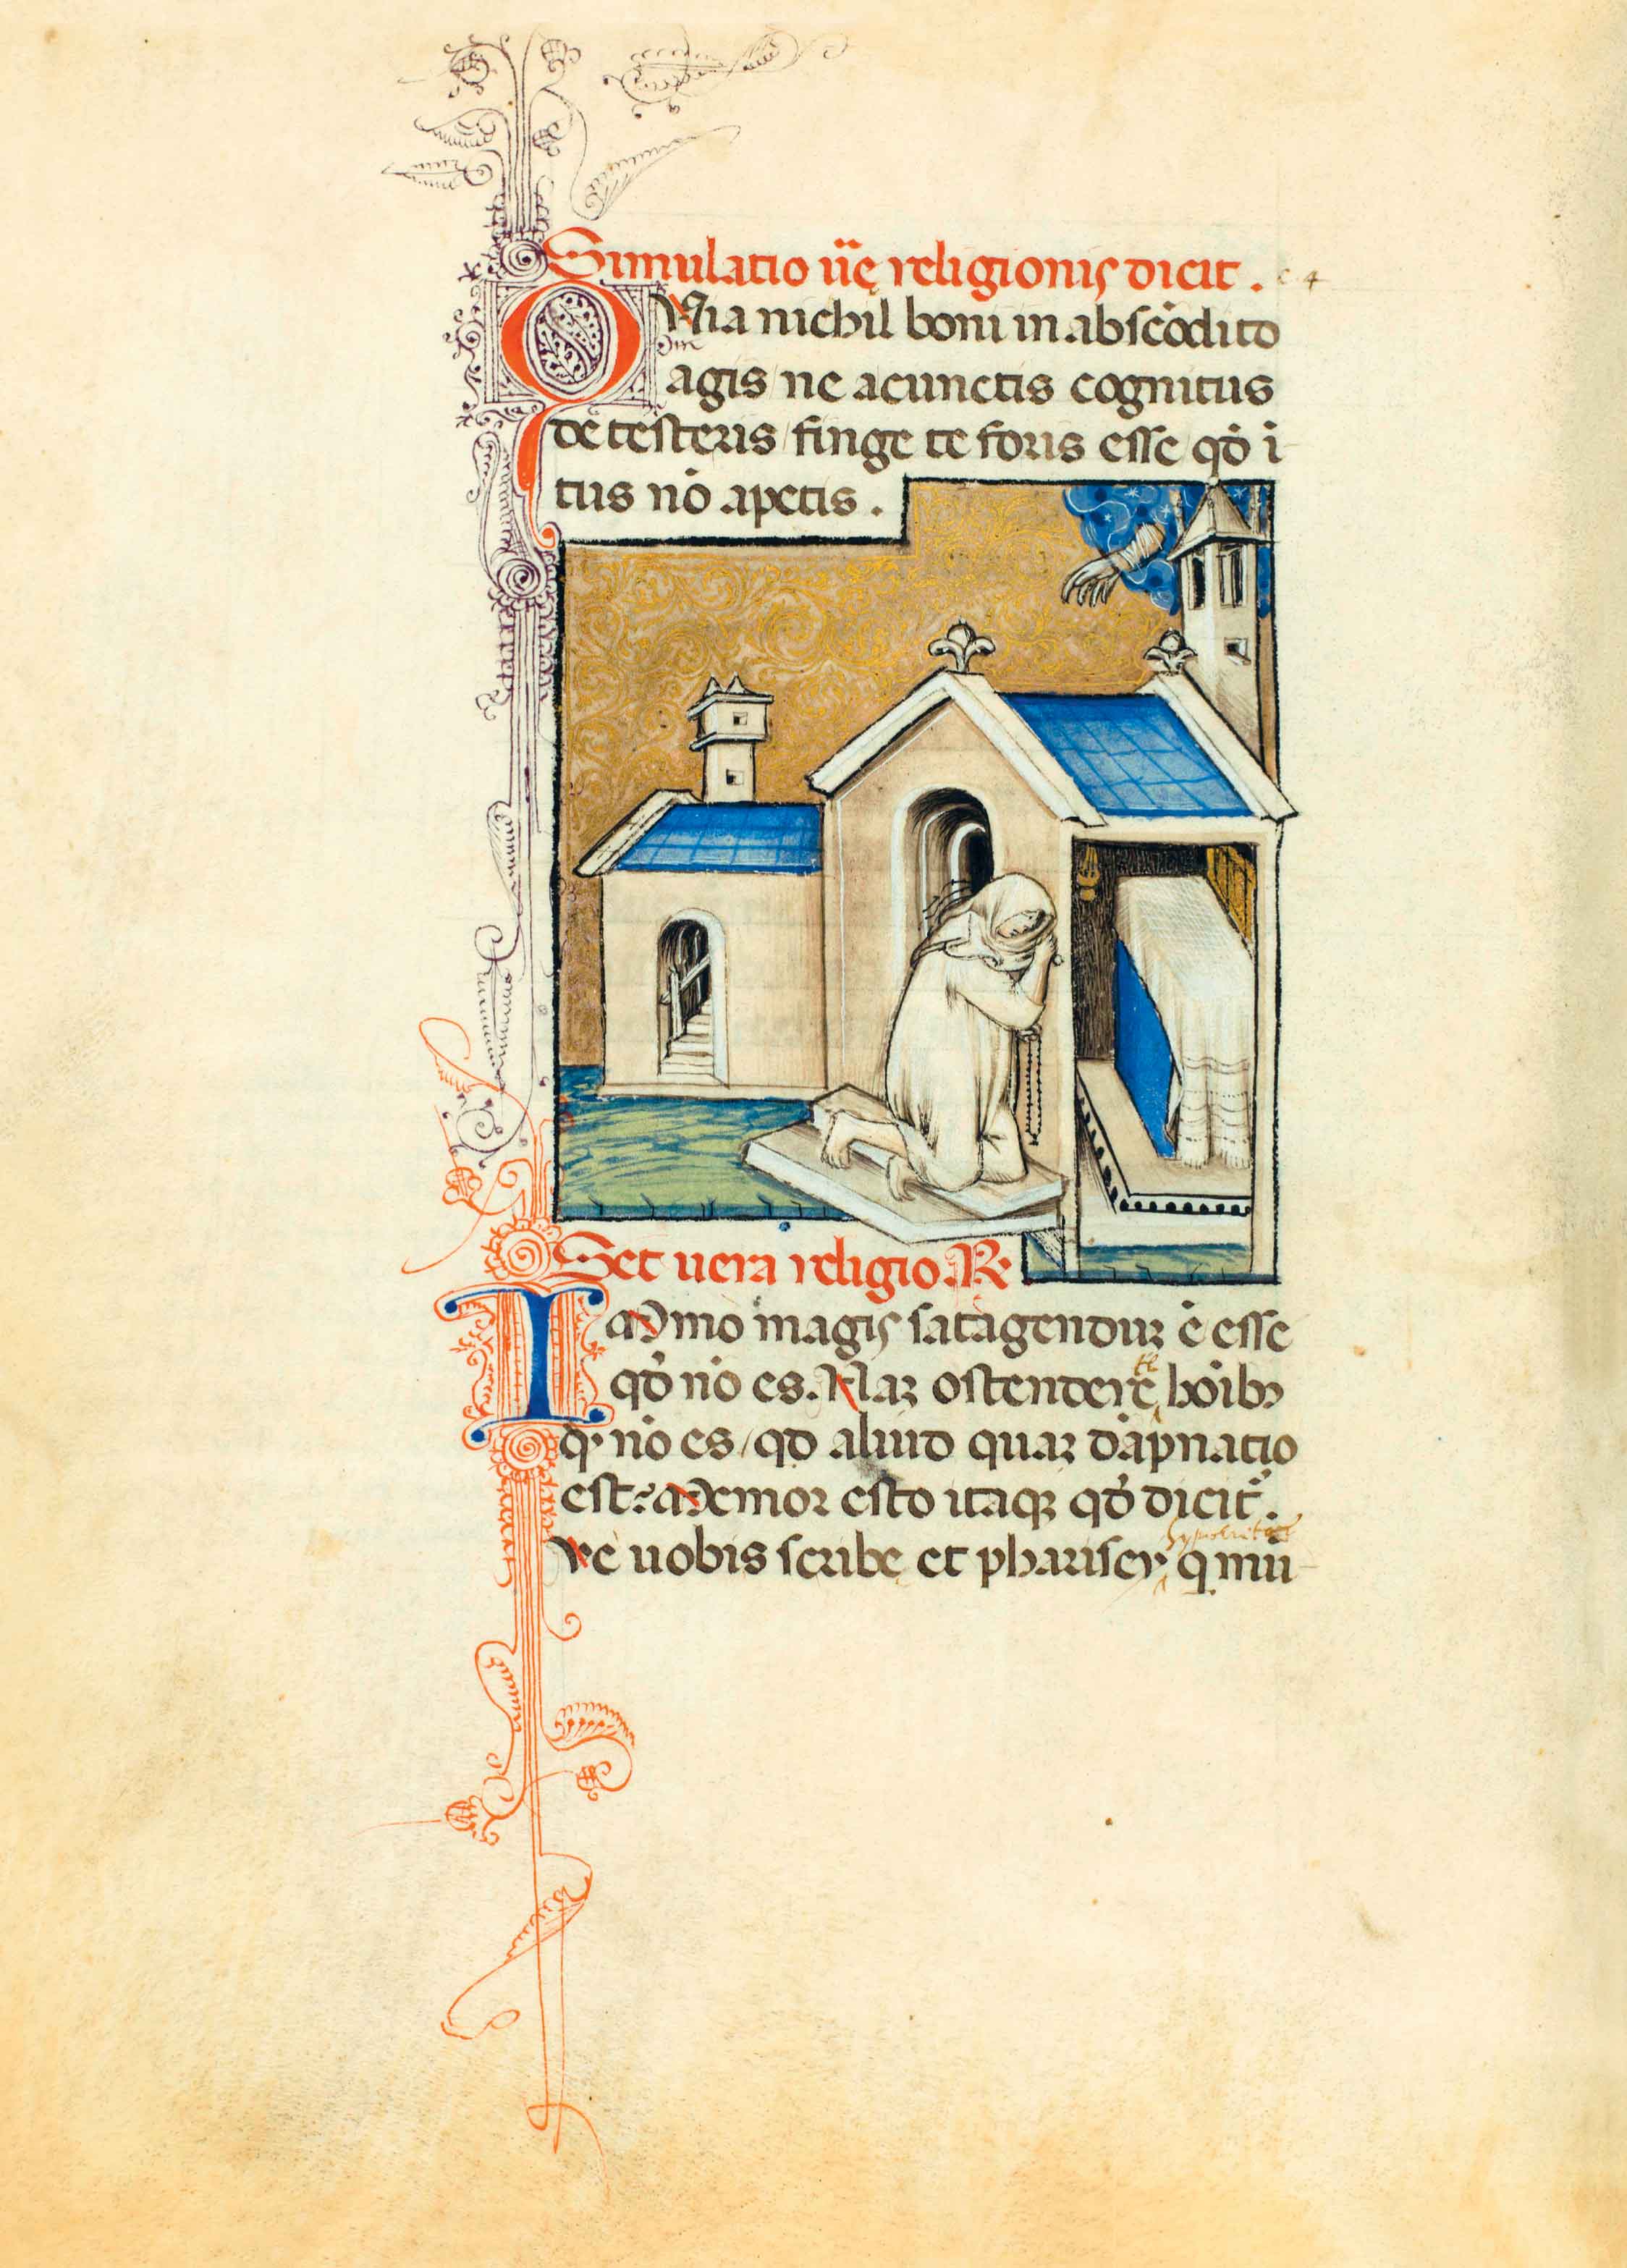 Simulatio ũe religionis dicit. c 4
Quia nichil boni in abscõdito
agis / ne a cunctis cognitus
detesteris / finge te foris esse qđ ĩ
tus nõ apetis.
Set uera religio. R
Immo magis satagenduʒ ẽ esse
qđ nõ es. Naʒ ostendere te hõibꝯ
qđ nõ es / qđ aliud quaʒ dãpnatio
est? Memor esto itaqʒ qđ dicit̃.
Ve uobis scribe et pharisey hypocritae q mũ-